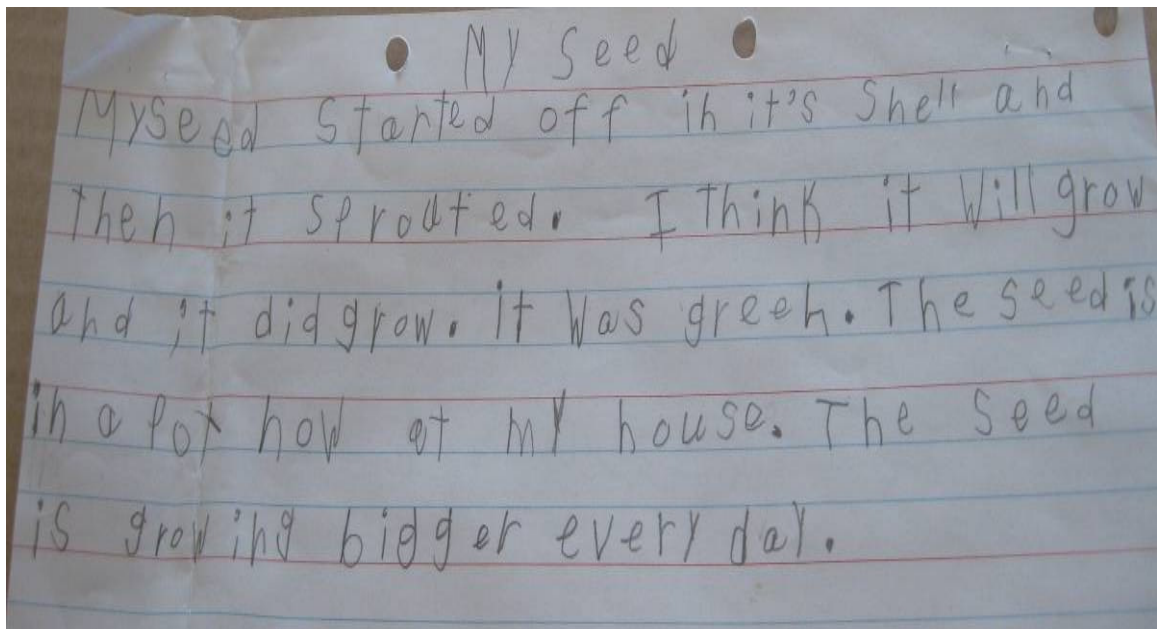 My Seed
My Seed Started off in it's Shell and
then it sprouted. I think it Will grow
and it did grow. it Was green. The seed is
in a pot now at my house. The Seed
is growing bigger every day.